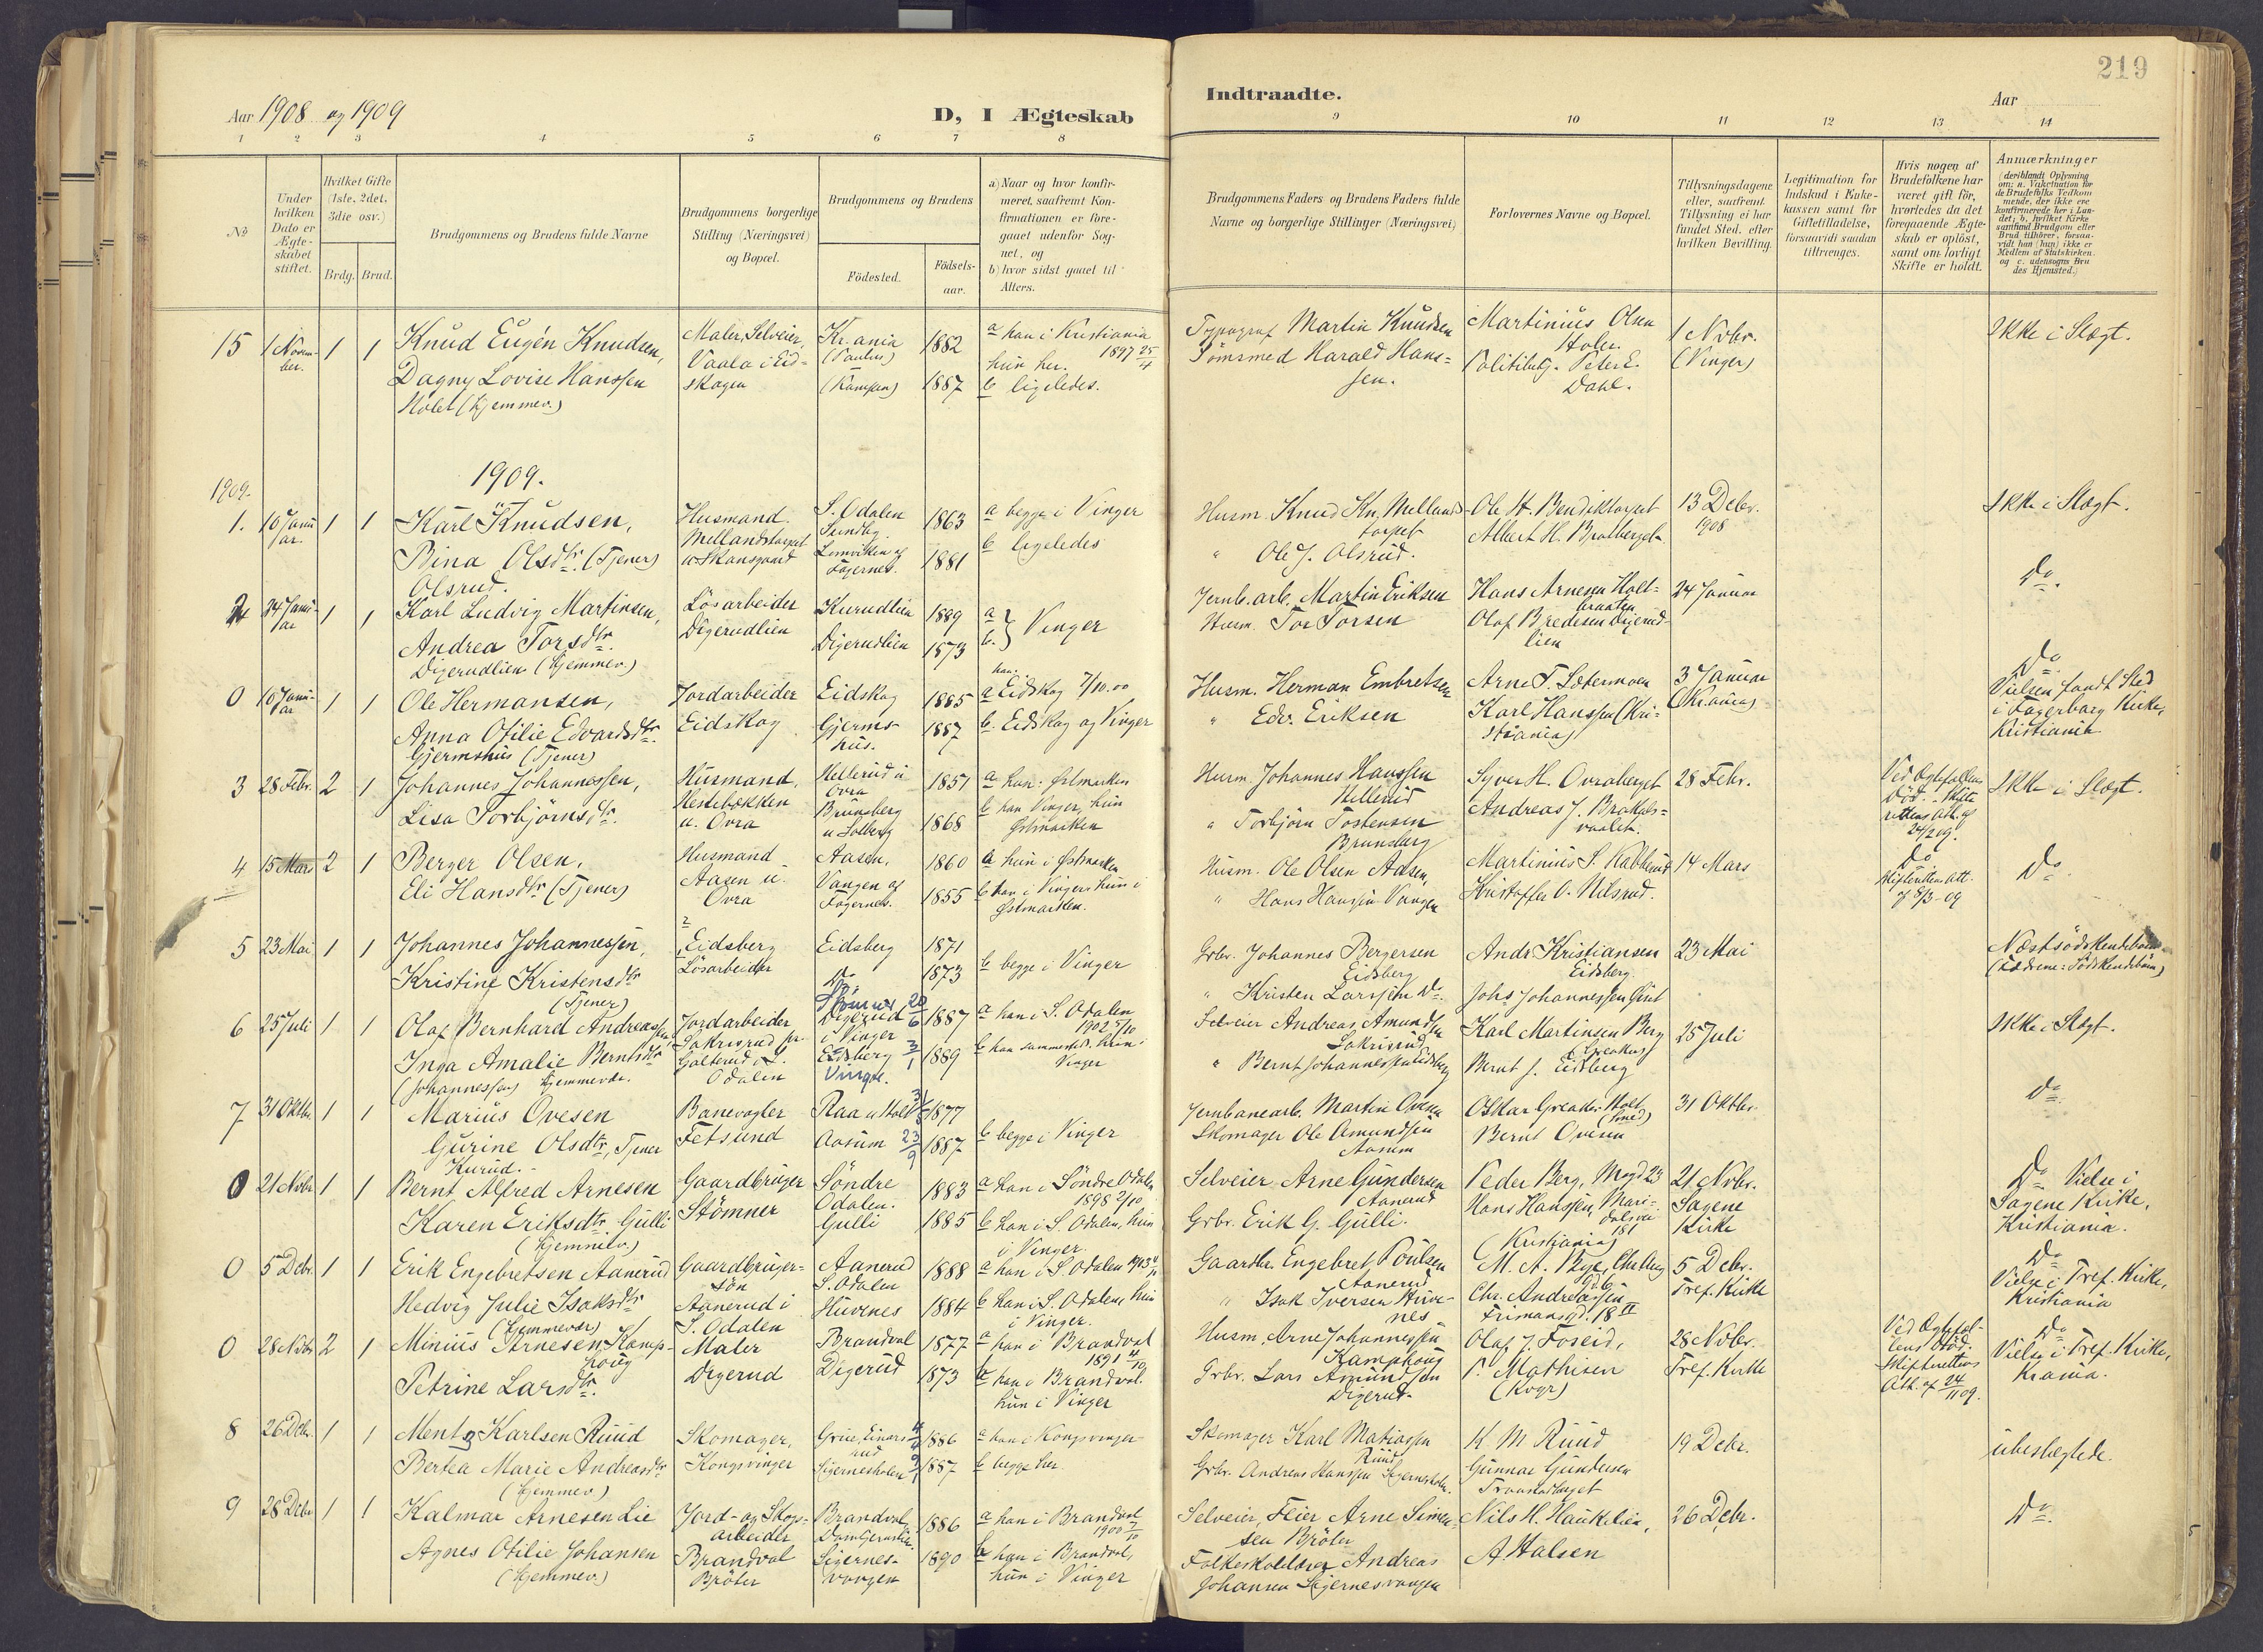 219
Aar 1908 og 1909
D, I Ægteskab
Indtraadte.
Aar
1 2 3 4 5 6 7 8 9 10 11 12 13 14
No
Under hvilken Dato er Ægteskabet stiftet.
Hvilket Gifte (1ste, 2det, 3die osv.)
Brdg. Brud.
Brudgommens og Brudens fulde Navne
Brudgommens borgerlige Stilling (Næringsvei) og Bopæl.
Brudgommens og Brudens
Födested.
Födselsaar.
a) Naar og hvor konfirmeret, saafremt Konfirmationen er foregaaet udenfor Sognet, og
b) hvor sidst gaaet til Alters.
Brudgommens Faders og Brudens Faders fulde Navne og borgerlige Stillinger (Næringsvei)
Forlovernes Navne og Bopæl.
Tillysningsdagene eller, saafremt Tillysning ei har fundet Sted, efter hvilken Bevilling.
Legitimation for Indskud i Enkekassen samt for Giftetilladelse, forsaavidt saadan tiltrænges.
Hvis nogen af Brudefolkene har været gift för, hvorledes da det foregaaende Ægteskab er oplöst, samt om lovligt Skifte er holdt.
Anmærkninger
15 1 Novem-ber. 1 1 Knud Eugén Knudsen, Maler, Selveier, Kr.ania 1882 a han i Kristiania 1897 25/4
Dagny Lovise Hanssen Vaala i Eidskogen 1887 hun her. b ligeledes.
(Hjemmev.)
Typograf Martin Knudsen Martinius Olsen 1 Novbr. (Vinger) Ikke i Slægt.
Harald Hanssen. Politibetj. Peter E. Dahl.
1909.
1909.
1. 10 Januar. 1 1 Karl Knudsen, Husmand S. Odalen Sundby 1863 a begge i Vinger
Bina Olsdtr. (Tjener) Mellandstorpet u. Skansgaard Lomvikken af Fagernes. 1881 b ligeledes
Olsrud.
Husm. Knud Kn. Mellandstorpet Ole H. Bendiktorpet 13 Debr. 1908 Ikke i Slægt.
" Ole J. Olsrud. Albert H.
2 24 Januar 1 1 Karl Ludvig Martinsen, Lösarbeider Kurudlien 1889 a
Andrea Torsdtr. Digerudlien Digerudlien 1873 b. } Vinger
Digerudlien (Hjemmev.)
Jernb. arb. Martin Eriksen Hans Arnesen Holtbraaten 24 Januar Do.
Husm. Tor Torsen Olaf Bredesen Digerudlien
0 10 Januar 1 1 Ole Hermansen, Jordarbeider Eidskog 1885 han: a Eidskog 7/10.00
Anna Otilie Edvardsdtr. Eidskog Gjermshus. 1887 b. Eidskog og Vinger
Gjermshus (Tjener)
Husm. Herman Embretsen Arne T. Sætermoen 3 Januar (Kr.ania) Do
" Edv. Eriksen Karl Hanssen (Kristiania) Vielsen fandt Sted i Fagerborg Kirke, Kristiania
3 28 Febr. 2 1 Johannes Johannessen, Husmand, Hellerud u. Ovra 1857 a han: Østmarken
Lisa Torbjörnsdtr. Hestebækken u. Ovra Brunsberg u Solberg 1868 b han Vinger, hun Østmarken
Husm. Johannes Hanssen Hellerud Syver H. Ovraberget 28 Febr. Ved Ægtefællens Död. Skifterettens Att. af 24/2 09. Ikke i Slægt.
" Torbjörn Tostensen Brunsberg Andreas J.
4 15 Mars 2 1 Berger Olsen, Husmand Aasen, 1860 a hun i Østmarken
Eli Hansdtr (Tjener) Aasen u. Ovra Vangen af Fagernes. 1855 b han i Vinger, hun i Østmarken.
Husm. Ole Olsen Aasen, Martinius S. 14 Mars Do Skifterettens Att. af 8/3-09 Do.
" Hans Hanssen Vangen Kristoffer O. Nilsrud.
5 23 Mai 1 1 Johannes Johannessen, Eidsberg Eidsberg 1871
Kristine Kristensdtr Lösarbeider Do 1873 b begge i Vinger
(Tjener)
Grbr. Johannes Bergersen Eidsberg Andr. Kristiansen Eidsberg. 23 Mai Næstsödskendebörn (Fædrene: Södskendebörn)
" Kristen Larssen Do. Johs Johannessen
6 25 Juli 1 1 Olaf Bernhard Andreassen, Jordarbeider Digerud i Vinger 20/6 1887 a han i S. Odalen 1902 5/10
Inga Amalie Berntsdtr Galterud, S. Odalen Eidsberg Vinger. 3/1 1889 b han sammested. hun i Vinger
(Johannessen) Hjemmevær.
Selveier Andreas Amundsen Karl Martinsen Berg 25 Juli Ikke i Slægt.
" Bernt Johannessen Eidsberg Bernt J. Eidsberg
7 31 Oktbr. 1 1 Marius Ovesen Banevogter Raa u Holt 1877
Gurine Olsdtr, Tjener Fetsund Aarum 23/9 1887 b begge i Vinger
Kurud.
Jernbanearb. Martin Ovesen Oskar Greaker Holt 31 Oktbr. Do.
Skomager Ole Amundsen Aarum Bernt Ovesen
0 21 Novbr 1 1 Bernt Alfred Arnesen Gaardbruger Söndre Odalen. 1883 a han i Söndre Odalen 1898 2/10
Karen Eriksdtr. Gulli Stömner Gulli 1885 b han i S. Odalen, hun i Vinger.
(Hjemmev.)
Selveier Arne Gundersen Aanerud Peder Berg, 21 Novbr. Sagene Kirke Do Vielse i Sagene Kirke, Kristiania.
Grbr. Erik G. Gulli. Hans Hanssen, Maridalsvei 181 (Kristiania)
0 5 Debr. 1 1 Erik Engebretsen Aanerud Gaardbrugersön Aanerud S. Odalen 1888 a han i S. Odalen
Hedvig Julie Isaksdtr Aanerud i S. Odalen Huvenes 1884 b han i S. Odalen, hun i Vinger.
(Hjemmevær)
Gaardbr. Engebret Poulsen Aanerud M. A. 5 Debr. Tref. Kirke Do Vielse i Tref. Kirke, Kristiania
" Isak Iversen Huvenes Chr. Andreassen Frimansgd. 18 II
0 28 Novbr 2 1 Minius Arnesen Kamphoug Maler Brandval 1877 a han i Brandval 1891 4/10
Petrine Larsdtr. Digerud Digerud 1873 b han i Brandval. hun i Vinger
Husm. Arne Johannessen Kamphoug Olaf J. Foseid, 28 Novbr. Tref. Kirke Ved Ægtefællens Död. Skifterettens Att. af 24/11 09. Do Vielse i Tref. Kirke, Krania.
Grbr. Lars Amundsen Digerud. P. Mathisen (Kvgr)
8 26 Debr. 1 1 Mentz Karlsen Ruud Skomager, Grue, Einarsrud 1886 a han i Kongsvinger
Berta Marie Andreasdtr Kongsvinger Sigernesholen 1887 b begge her.
(Hjemmev)
Skomager Karl Matiassen Ruud K M Ruud 19 Debr. ubeslægtede.
Grbr. Andreas Hanssen Sigernesholen. Gunnar Gundersen
9 28 Debr 1 1 Kalmar Arnesen Lie Jord- og Skogsarbeider Brandval 1886 a han i Brandval 1900 7/10
Agnes Otilie Johansen Brandval Bröter Sigernesvangen 1890 b han i Brandval, hun i Vinger
(Hjemmev.)
Selveier, Feier Arne Simensen Bröter Nils H. Haukelien, 26 Debr. Do.
Folkeskolelærer Andreas Johansen Sigernesvangen A Halsen